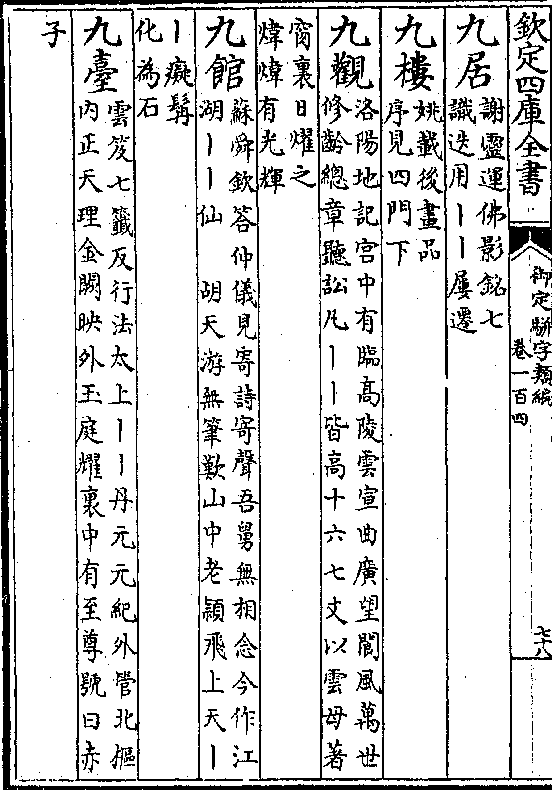 欽定四庫全書
御定駢字類編
卷一百四
七十八
九居 謝靈運佛影銘七
識迭用｜｜屢遷
九樓 姚載後畫品
序見四門下
九觀 洛陽地記宫中有臨髙陵雲宣曲廣望閬風萬世
修齡總章聽訟凡｜｜皆高十六七丈以雲母著
窗裏日耀之
煒煒有光輝
九館 蘇舜欽答仲儀見寄詩寄聲吾舅無相念今作江
湖｜｜仙 胡天游無筆歎山中老穎飛上天｜
｜癡髯
化為石
九臺 雲笈七籖反行法太上｜｜丹元元紀外管北樞
内正天理金闕映外玉庭耀裏中有至尊號曰赤
子